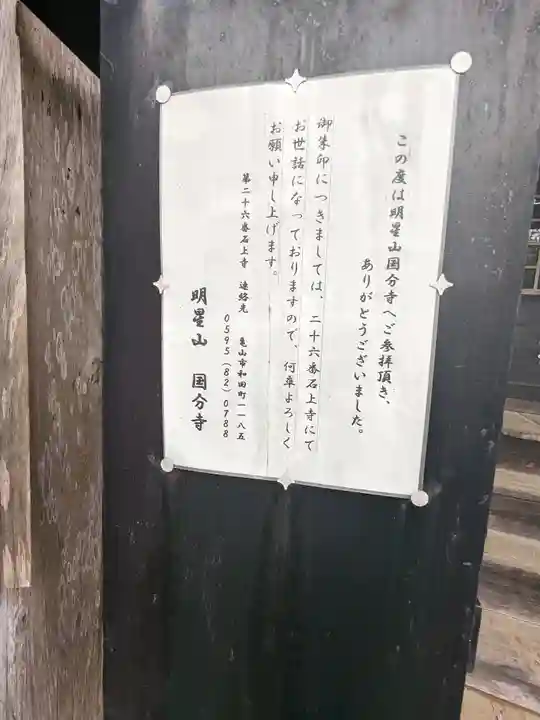 この度は明星山国分寺へご参拝頂き、
ありがとうございました。
御朱印につきましては、二十六番石上寺にて
お世話になっておりますので、何卒よろしく
お願い申し上げます。
第二十六番石上寺　連絡先　亀山市和田町一一八五
0595(82)0788
明星山　国分寺